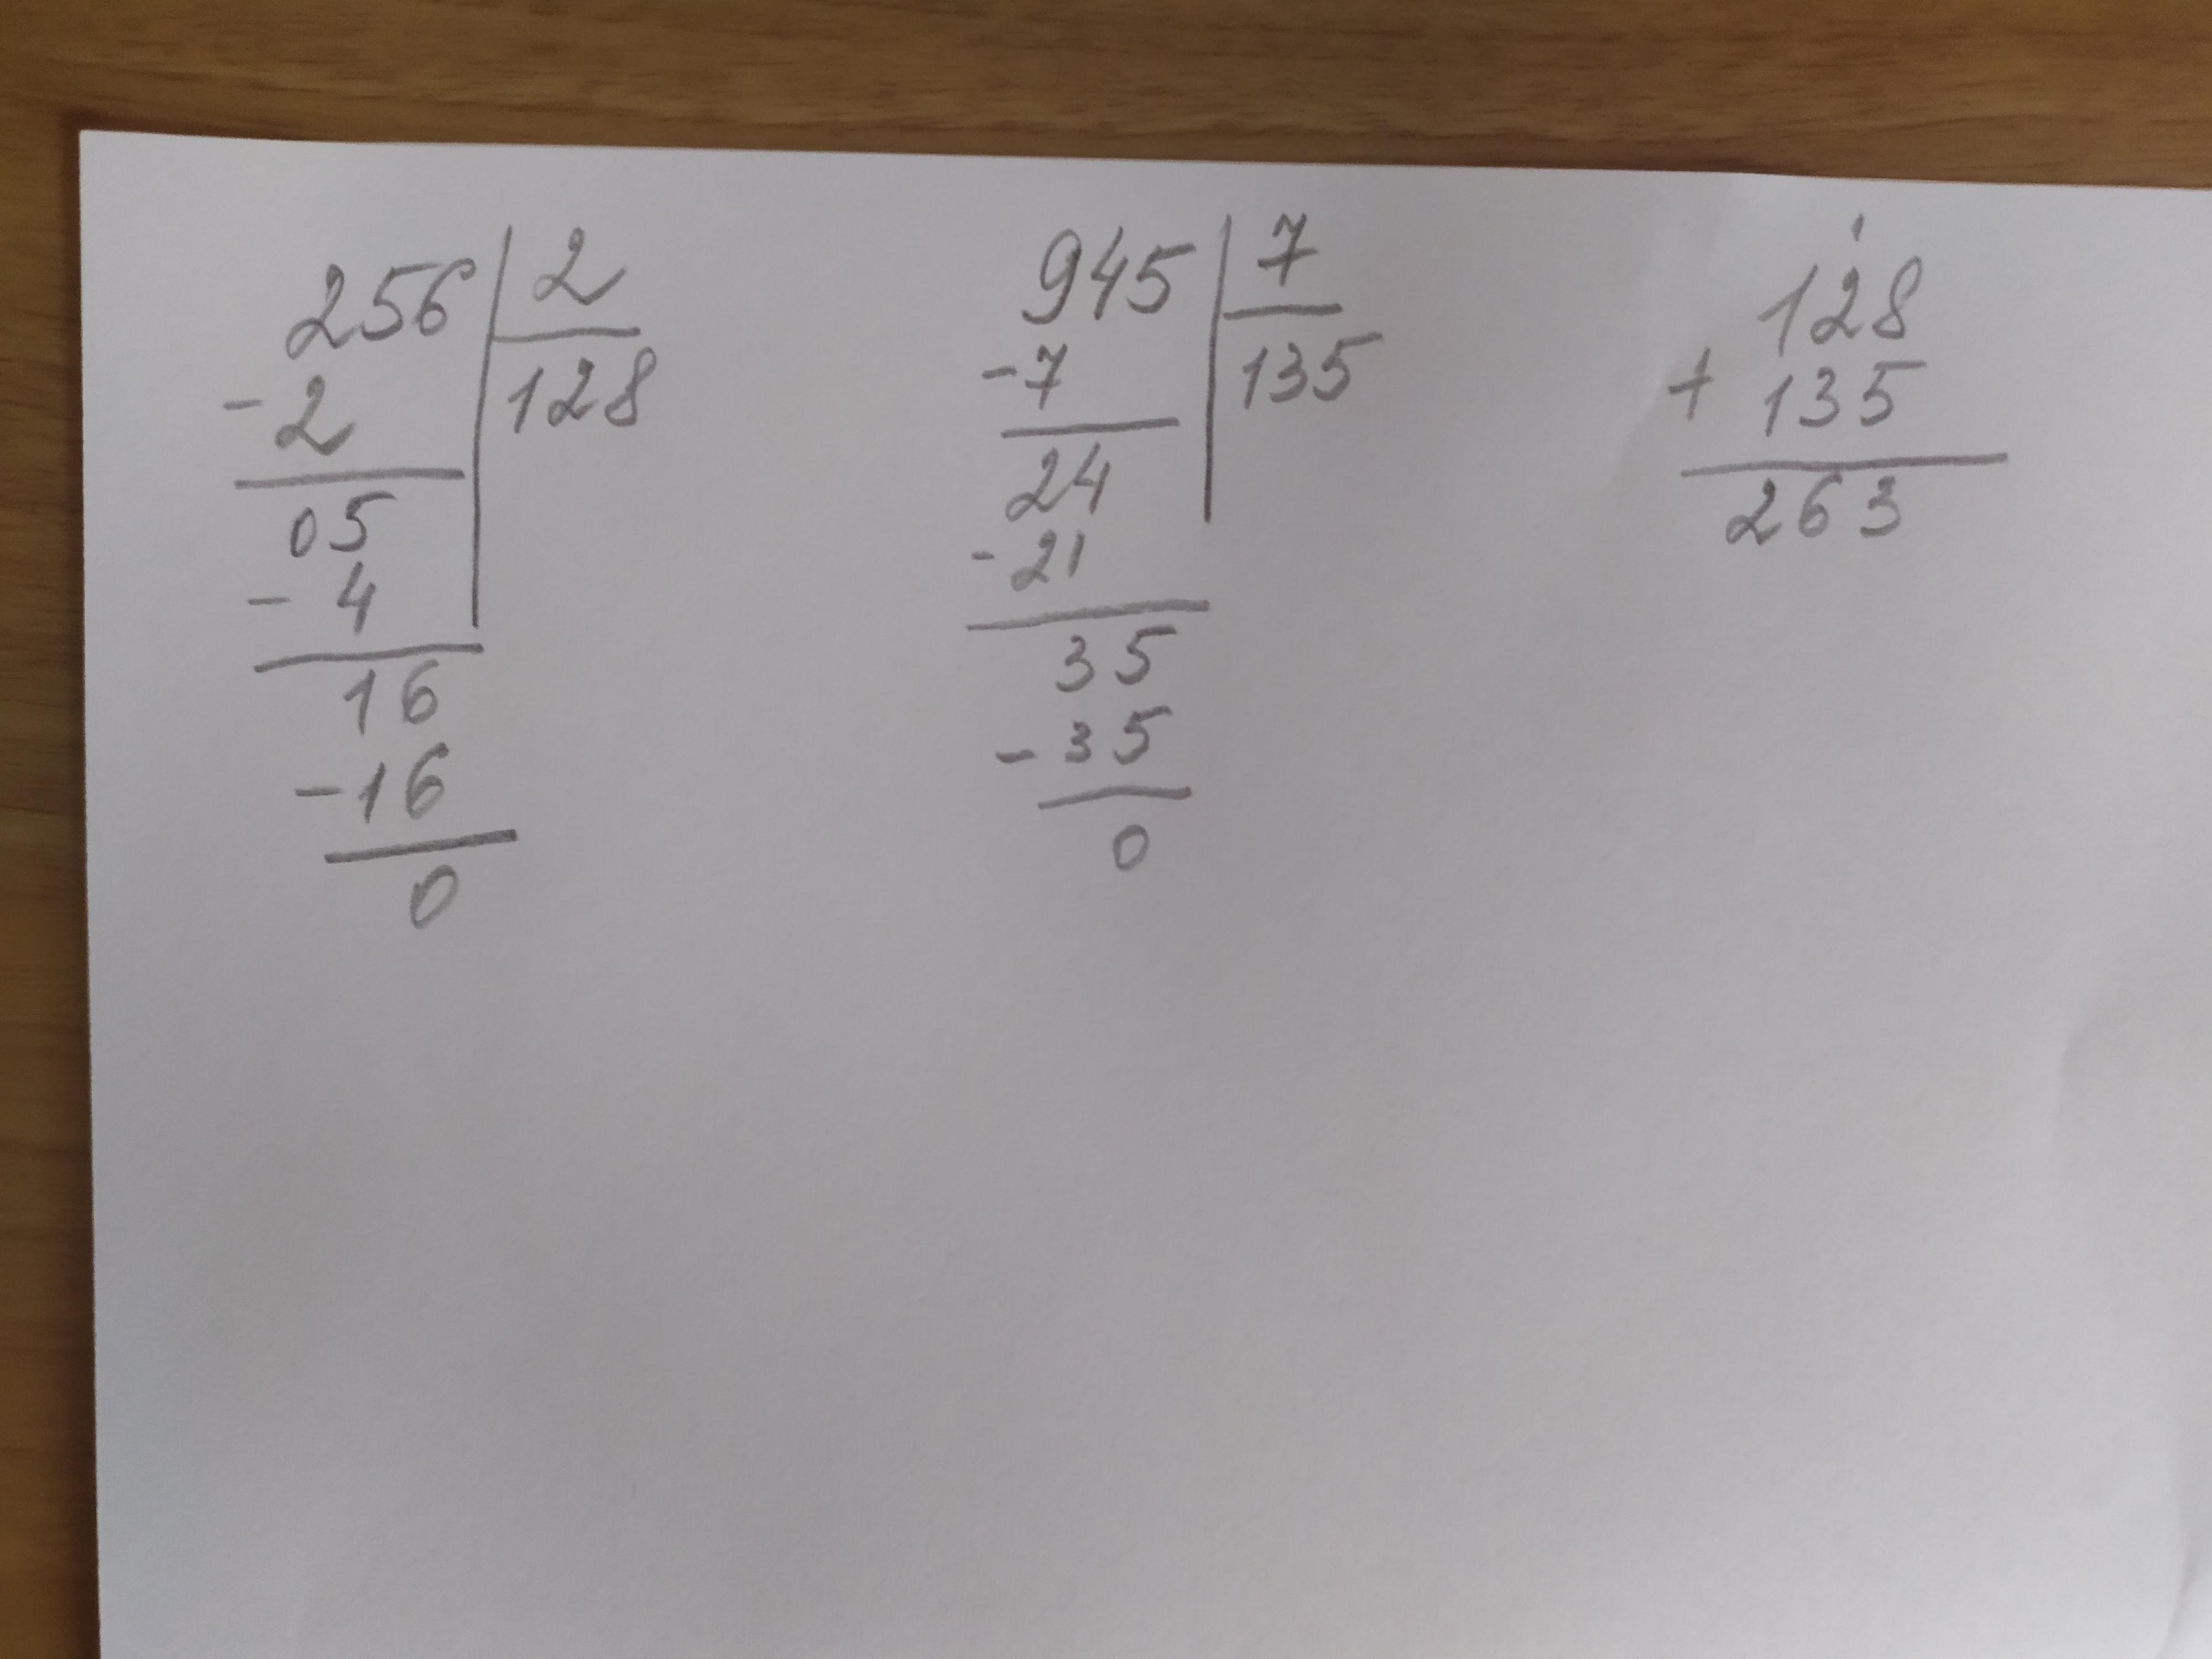 256 2
- 2 128
05
- 4
16
- 16
0
945 7
- 7 135
24
- 21
35
- 35
0
1
128
+ 135
263